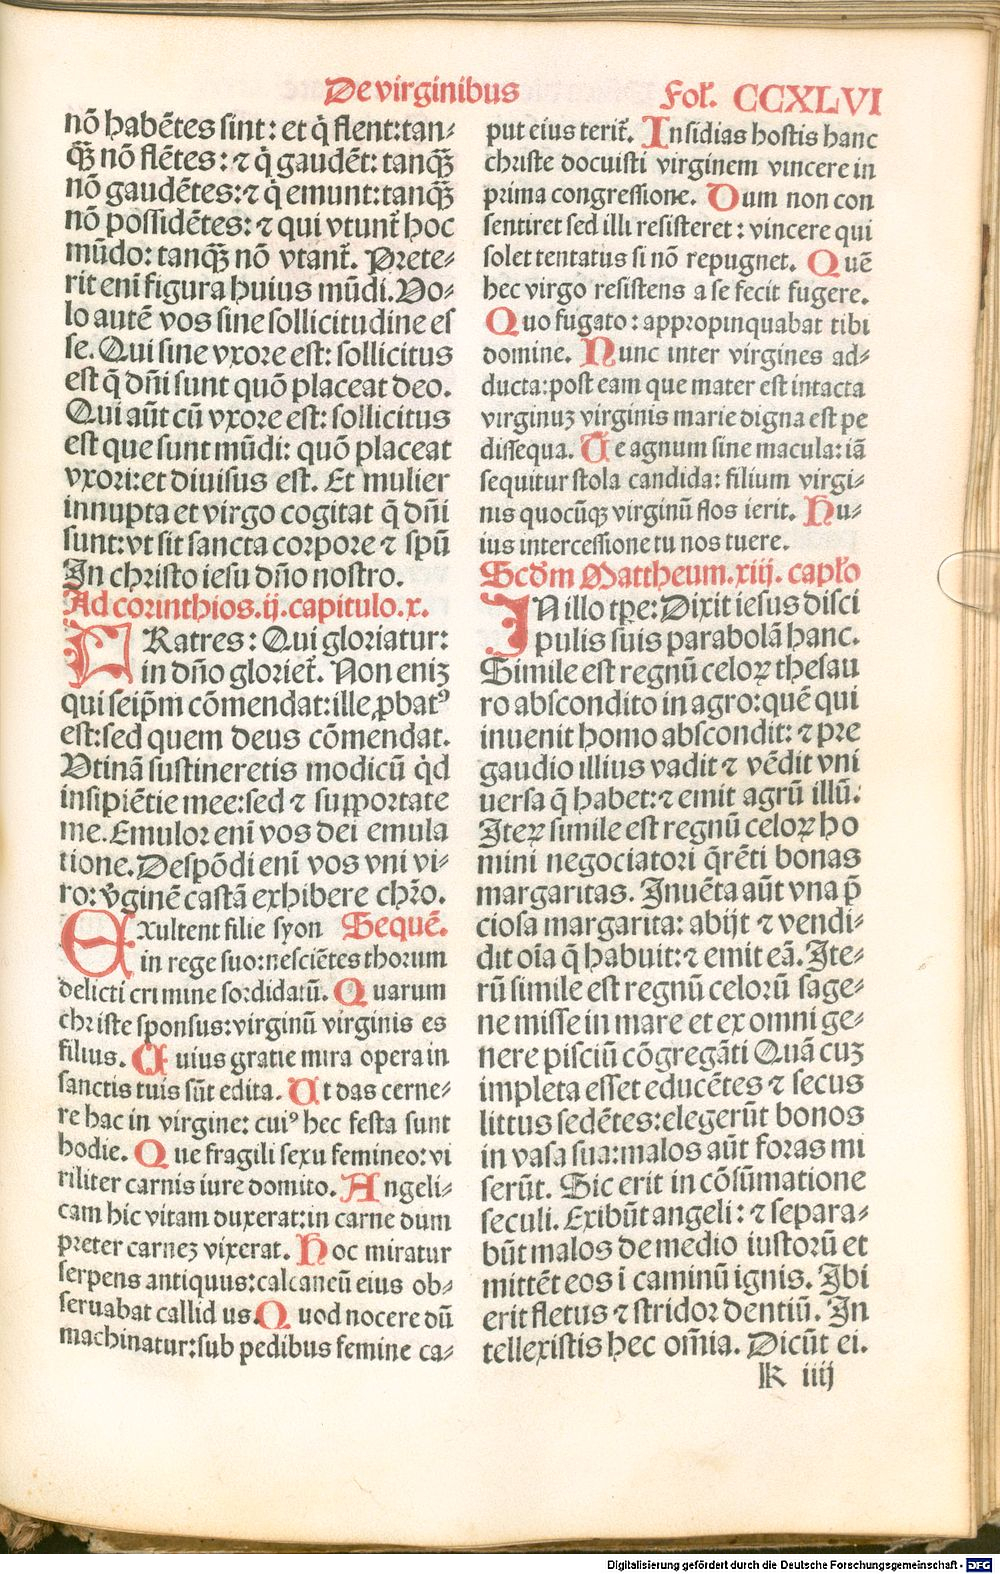 De virginibus
Fol̃. CCXLVI
nō habētes sint: et q̇ flent: tan⸗
q̃ꝫ nō flētes: ⁊ q̇ gaudēt: tanq̃ꝫ
nō gaudētes: ⁊ q̇ emunt: tanq̃ꝫ
nō possidētes: ⁊ qui vtunt̃ hoc
mūdo: tanq̃ꝫ nō vtant̃. Prete⸗
rit eni᷑ figura huius mūdi. Vo⸗
lo autē vos sine sollicitudine es
se. Qui sine vxore est: sollicitus
est q̄ dn̄i sunt quō placeat deo.
Qui aūt cū vxore est: sollicitus
est que sunt mūdi: quō placeat
vxori: et diuisus est. Et mulier
innupta et virgo cogitat q̄ dn̄i
sunt: vt sit sancta corpore ⁊ spū
In christo iesu dn̄o nostro.
Ad corinthios. ij. capitulo. x.
FRatres: Qui gloriatur:
in dn̄o gloriet̃. Non enimꝫ
qui seip̄m cōmendat: ille ꝓbatꝰ
est: sed quem deus cōmendat.
Vtinā sustineretis modicū q̇d
insipiētie mee: sed ⁊ supportate
me. Emulor eni᷑ vos dei emula
tione. Despōdi eni᷑ vos vni vi⸗
ro: v̓ginē castā exhibere chr̄o.
EXultent filie syon Sequē.
in rege suo: nesciētes thorum
delicti crimine sordidatū. Quarum
christe sponsus: virginū virginis es
filius. Cuius gratie mira opera in
sanctis tuis sūt edita. Ut das cerne⸗
re hac in virgine: cuiꝰ hec festa sunt
hodie. Que fragili sexu femineo: vi
riliter carnis iure domito. Angeli⸗
cam hic vitam duxerat: in carne dum
preter carneꝫ vixerat. Hoc miratur
serpens antiquus: calcaneū eius ob⸗
seruabat callid us. Quod nocere dū
machinatur: sub pedibus femine ca⸗
put eius terit̃. Insidias hostis hanc
christe docuisti virginem vincere in
prima congressione. Dum non con
sentiret sed illi resisteret: vincere qui
solet tentatus si nō repugnet. Quē
hec virgo resistens a se fecit fugere.
Quo fugato: appropinquabat tibi
domine. Nunc inter virgines ad⸗
ducta: post eam que mater est intacta
virginuꝫ virginis marie digna est pe
dissequa. Te agnum sine macula: iā
sequitur stola candida: filium virgi⸗
nis quocūqꝫ virginū flos ierit. Hu⸗
ius intercessione tu nos tuere.
Scd̄m Mattheum. xiij. capl̓o
IN illo tp̄e: Dixit iesus disci
pulis suis parabolā hanc.
Simile est regnū celoꝝ thesau
ro abscondito in agro: quē qui
inuenit homo abscondit: ⁊ pre
gaudio illius vadit ⁊ vēdit vni
uersa q̄ habet: ⁊ emit agrū illū.
Iteꝝ simile est regnū celoꝝ ho
mini negociatori q̄rēti bonas
margaritas. Inuēta aūt vna p̄
ciosa margarita: abijt ⁊ vendi⸗
dit oīa q̄ habuit: ⁊ emit eā. Ite⸗
rū simile est regnū celorū sage⸗
ne misse in mare et ex omni ge⸗
nere pisciū cōgregāti Quā cuꝫ
impleta esset educētes ⁊ secus
littus sedētes: elegerūt bonos
in vasa sua: malos aūt foras mi
serūt. Sic erit in cōsūmatione
seculi. Exibūt angeli: ⁊ separa⸗
būt malos de medio iustorū et
mittēt eos ī caminū ignis. Ibi
erit fletus ⁊ stridor dentiū. In
tellexistis hec om̄ia. Dicūt ei.
k iiij
Digitalisierung gefördert durch die Deutsche Forschungsgemeinschaft - DFG